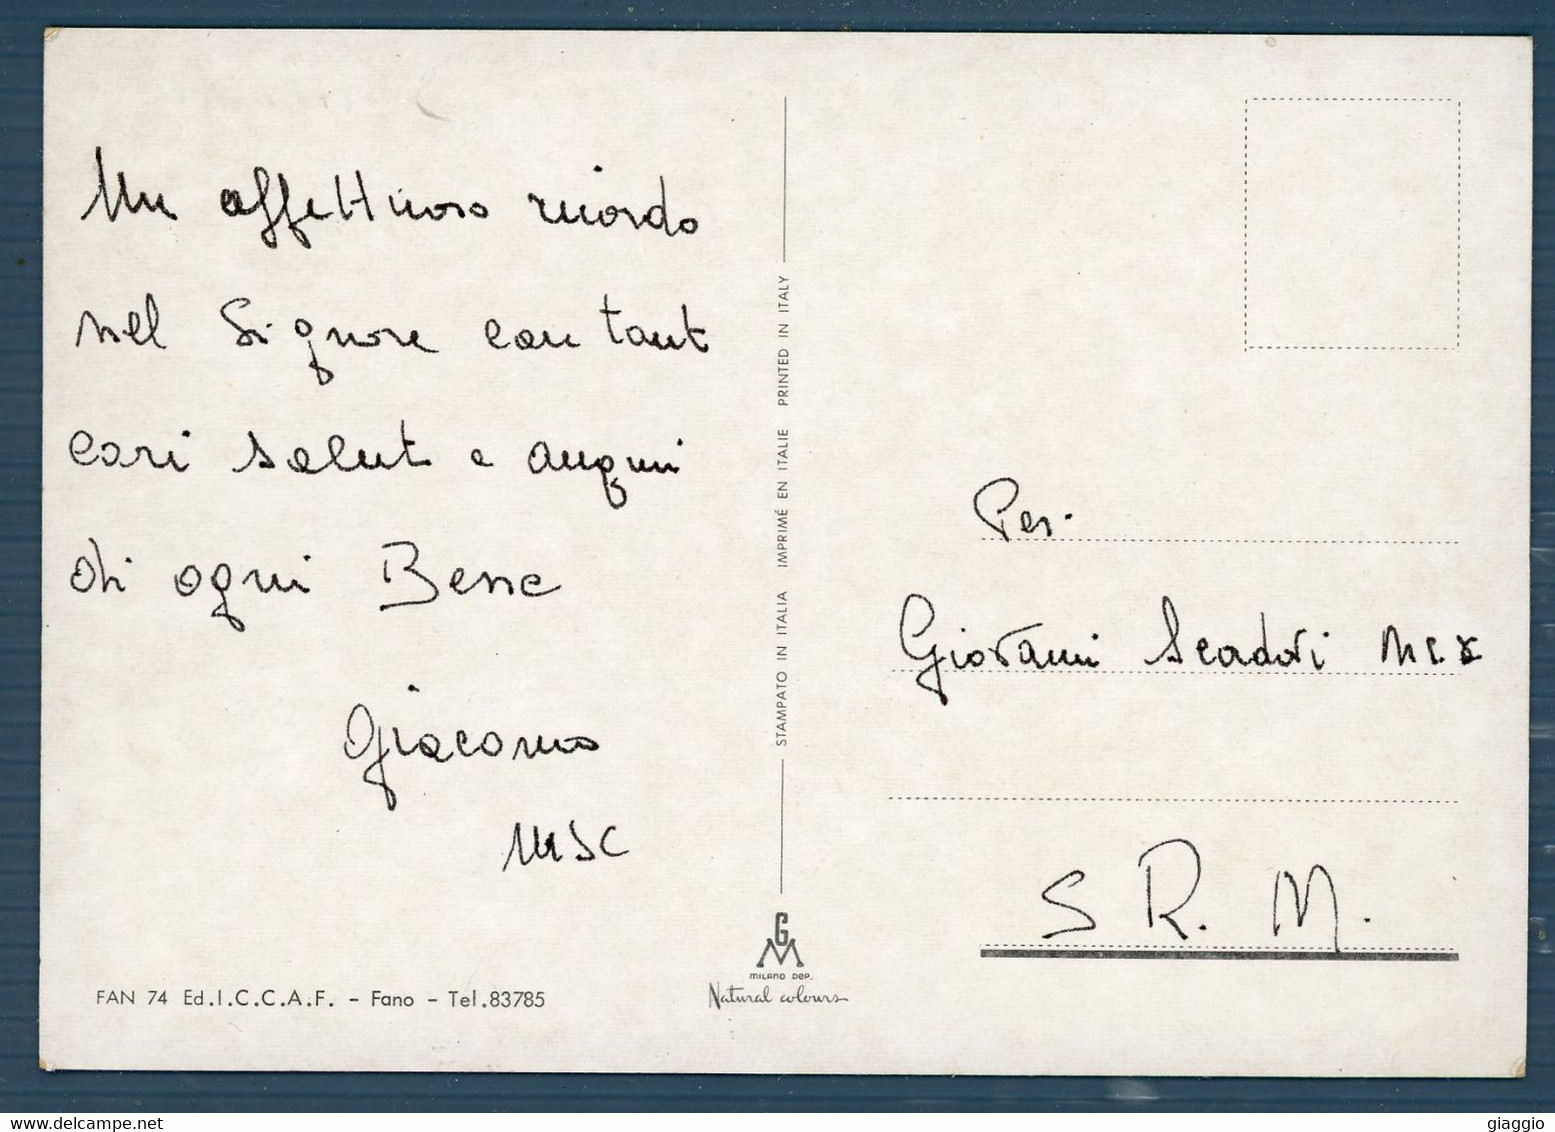 Un affettuoso ricordo
nel Signore con tanti
cari saluti e auguri
di ogni Bene
Giacomo
MSC
FAN 74 Ed.I.C.C.A.F. - Fano - Tel.83785
STAMPATO IN ITALIA IMPRIMÉ EN ITALIE PRINTED IN ITALY
GM
MILANO DEP.
Natural colours
Per.
Giovanni
S. R. M.
giaggio